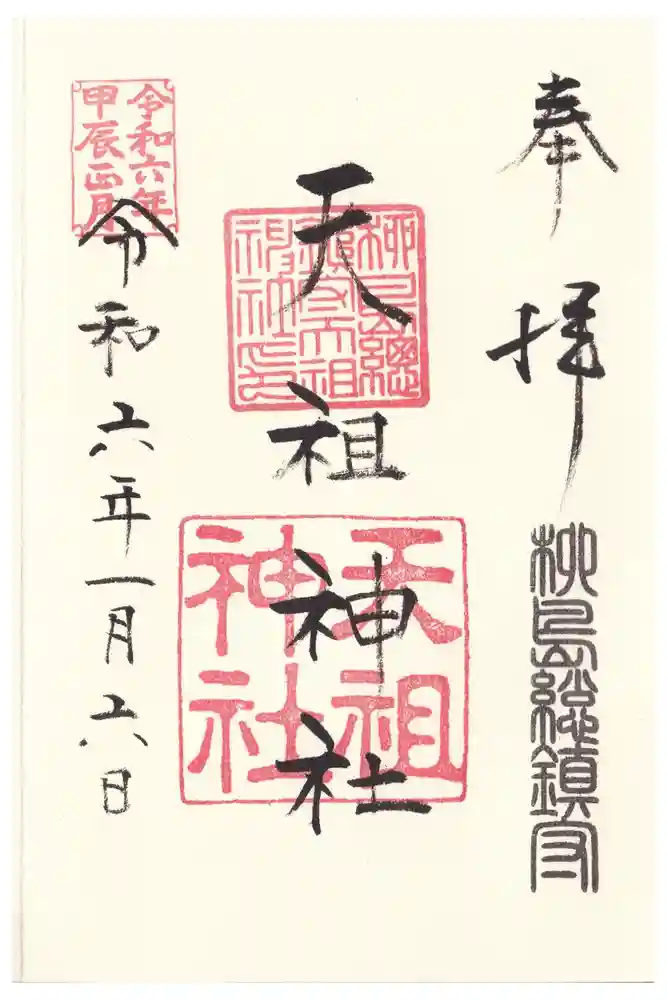 奉拝
柳島総鎮守
天祖神社
柳島總
鎮守天祖
神社
天祖
神社
令和六年
甲辰正月
令和六年一月六日